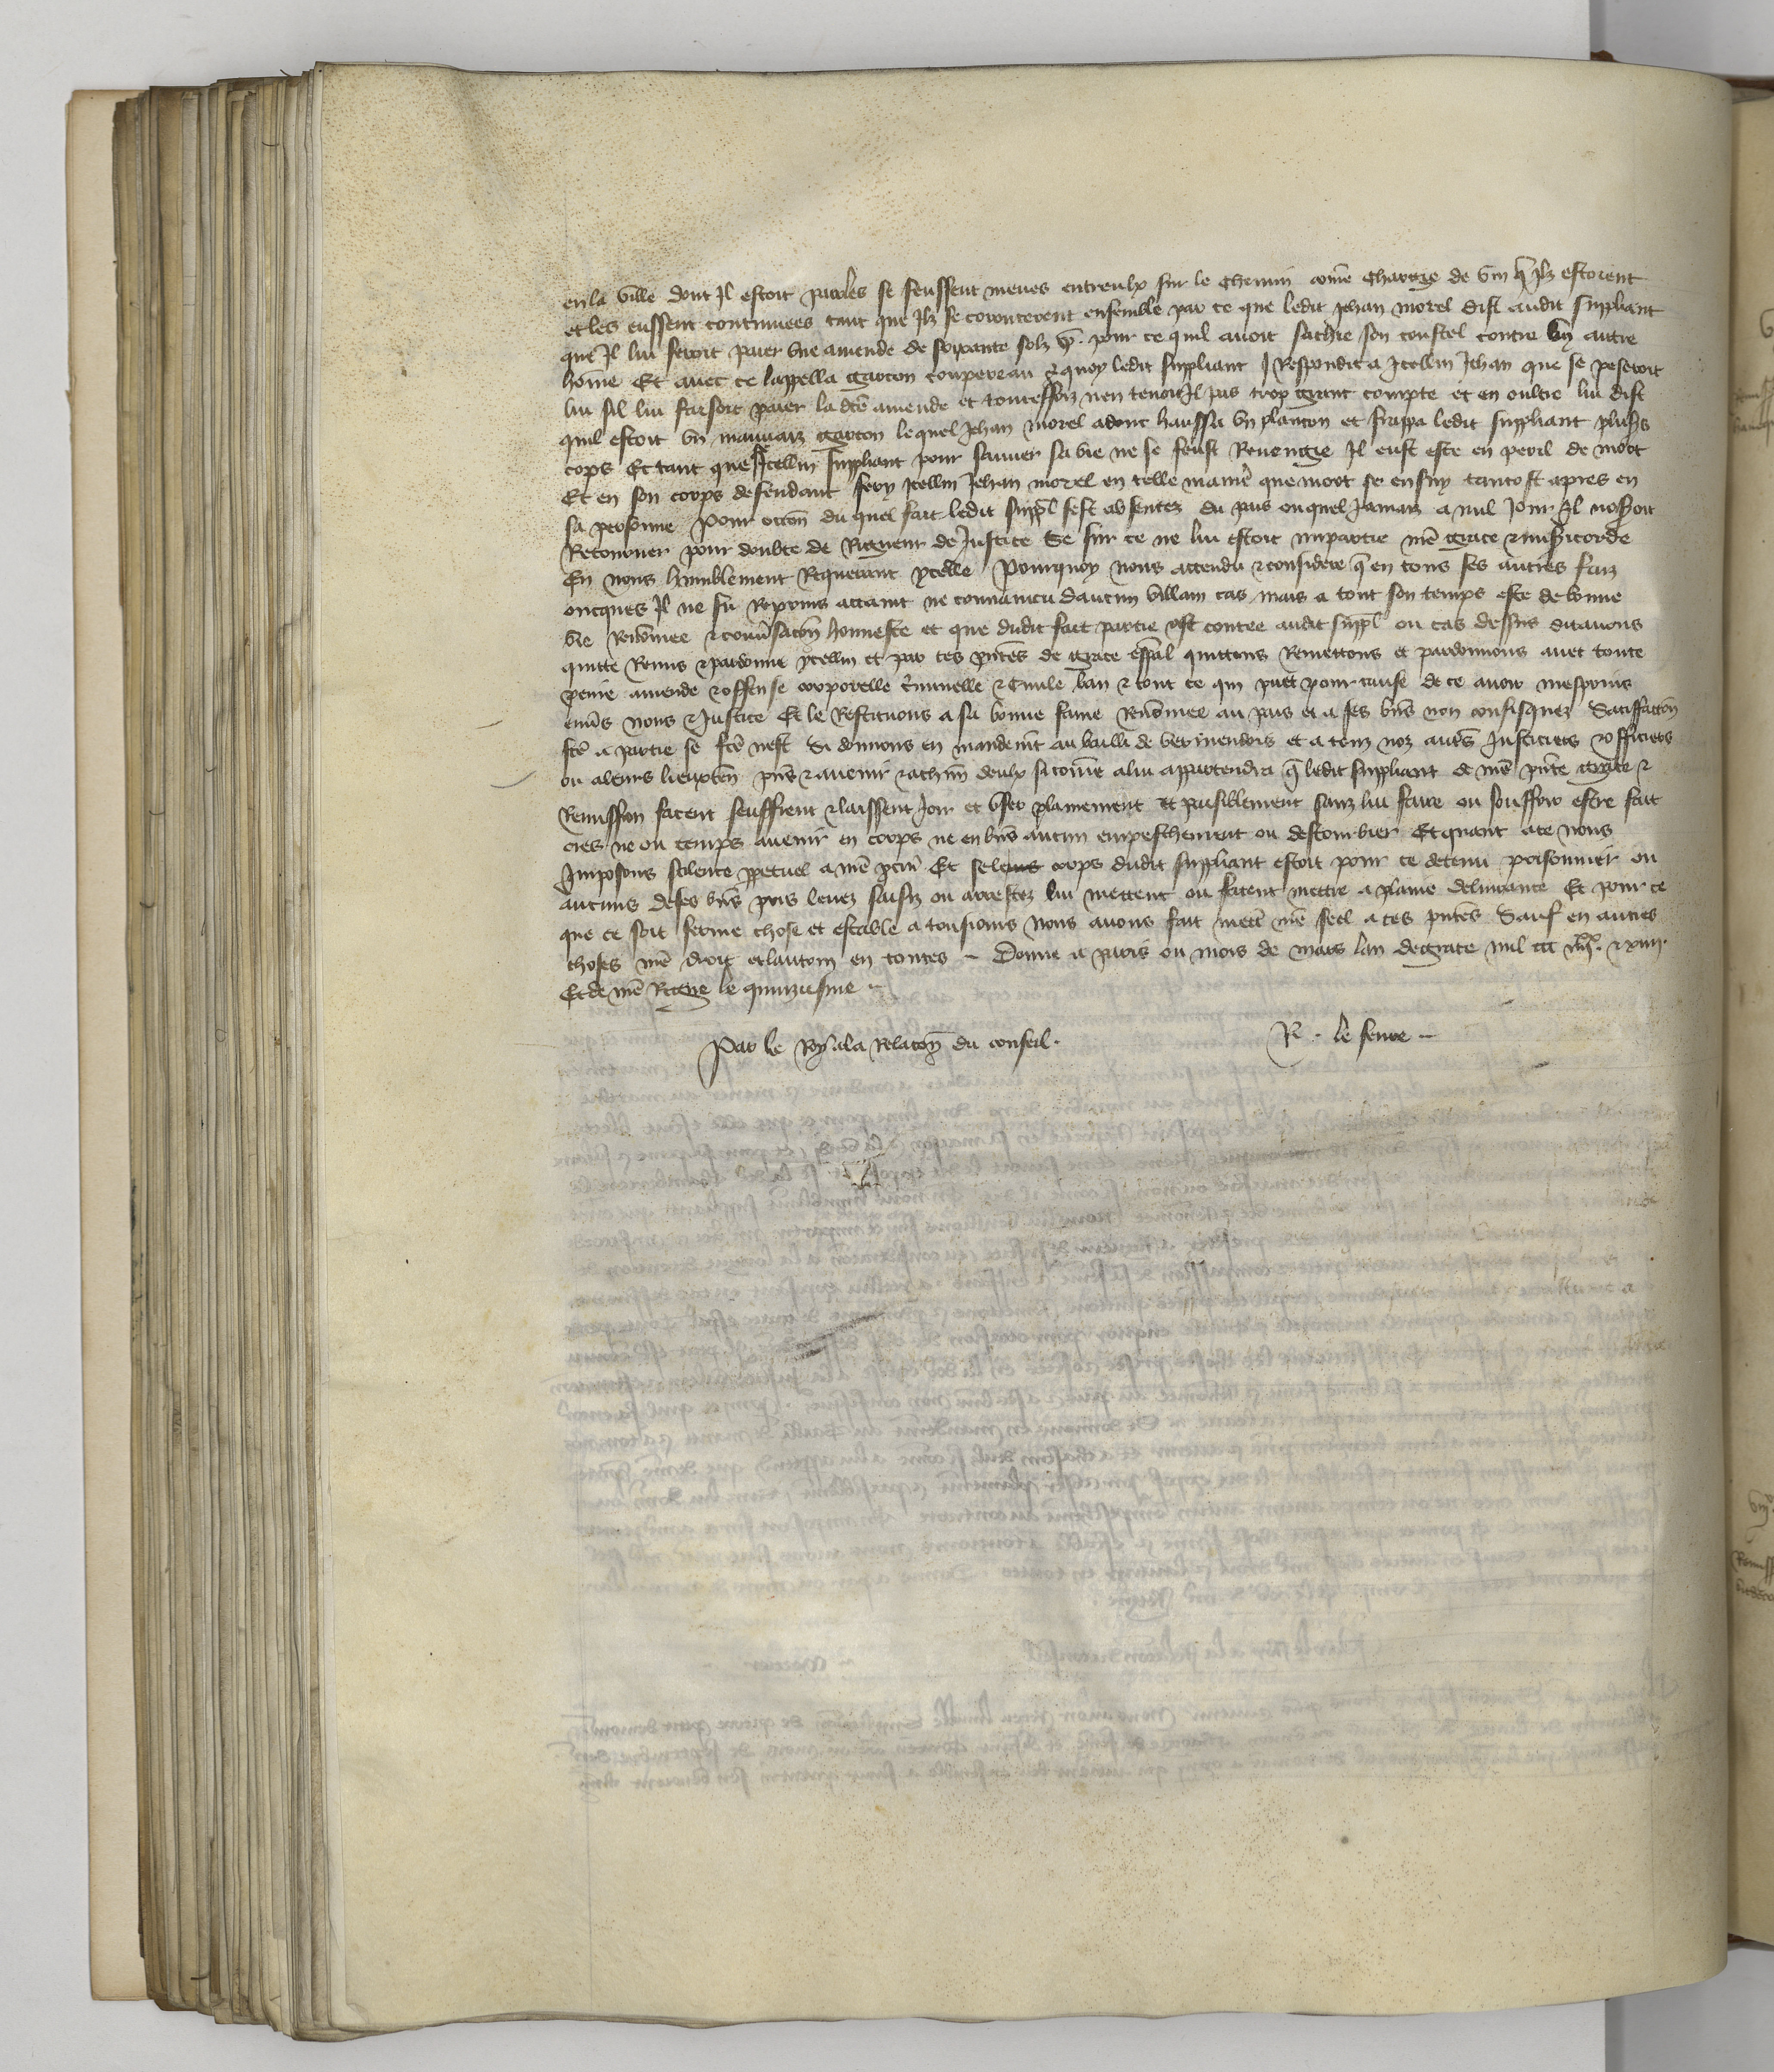 en la ville dont Il estoit paroles se feussent meues entreulx sur le chemin come chargie de vin q̃ Ilz estoient
et les eussent continuees tant que Ilz se corroucerent ensemble par ce que ledit Jehan morel dist audit suppliant
que Il lui feroit paier vne amende de soixante solz p̃. pour ce quil auoit sachie son coustel contre vn autre
hom̃e Et auec ce lappella garcon coupereau a quoy ledit suppliant Respondit a Jcellui Jehan que se peseroit
lui sil lui faisoit paier lad̃ce amende et touteffoiz nen tenoit Il pas trop grant compte et en oultre lui dist
quil estoit vn mauuaiz garcon lequel Jehan morel adonc haussa vn planton et frappa ledit suppliant plus̃s
cops Et tant que se Jcellui suppliant pour sauuer sa vie ne se feust Reuengie Il eust este en peril de mort
Et en son corps defendant fery Jcellui Jehan morel en telle maniẽ que mort sen ensuy tantost apres en
sa personne Pour occõn du quel fait ledit suppl̃ sest absentez du pais ouquel Jamaiz a nul Jour Il noseroit
Retourner pour doubte de Rigueur de Justice Se sur ce ne lui estoit impartie nr̃e grace & mis̃icorde
En nous humblement Requerant ycelle Pourquoy nous attendu & considere q̃ en tous ses autres faiz
oncques Il ne fu Reprins attaint ne conuaincu daucun villain cas mais a tout son temps este de bonne
vie Renõmee & conus̃acõn honneste et que dudit fait partie est contee audit suppl̃ ou cas dessus dit auons
quitte Remis & pardonne ycellui et par ces pñtes de grace esp̃al quittons Remettons et pardonnons auec toute
peine amende & offense corporelle c̃iminelle & Ciuile ban & tout ce qui puet pour cause de ce auoir mesprins
enuũs nous & Justice Et le Restituons a sa bonne fame Renõmee au pais et a ses bñs non confisquez Satiffaccõn
fcẽ a partie se fcẽ nest Si donnons en mandem̃t au bailli de vermendois et a touz noz autr̃s Justiciers & officiers
ou a leurs lieuxteñ pñs & auenir & achũn deulx si com̃e a lui appartendra q̃ ledit suppliant de nr̃e pñte grace &
Remission facent seuffrent & laissent Joir et vser plainement et paisiblement sanz lui faire ou souffrir estre fait
ores ne ou temps auenir en corps ne en bñs aucun empeschement ou destourbier Et quant a ce nous
Imposons silence ppetuel a nr̃e pcuñ Et se le corps dudit suppliant estoit pour ce detenu prisonnier ou
aucuns de ses bñs pris leuez saisiz ou arrestez lui mettent ou facent mettre a plaine deliurance Et pour ce
que ce soit ferme chose et estable a tousiours Nous auons fait mettr̃ nr̃e seel a ces pñtes Sauf en autres
choses nr̃e droit et lautrui en toutes ~ Donne a paris ou mois de mars lan de grace mil ccc iiij^xx & xiiij.
Et de nr̃e Regne le quinziesme ~
Par le Roy a la Relacõn du conseil. R. le feure ~